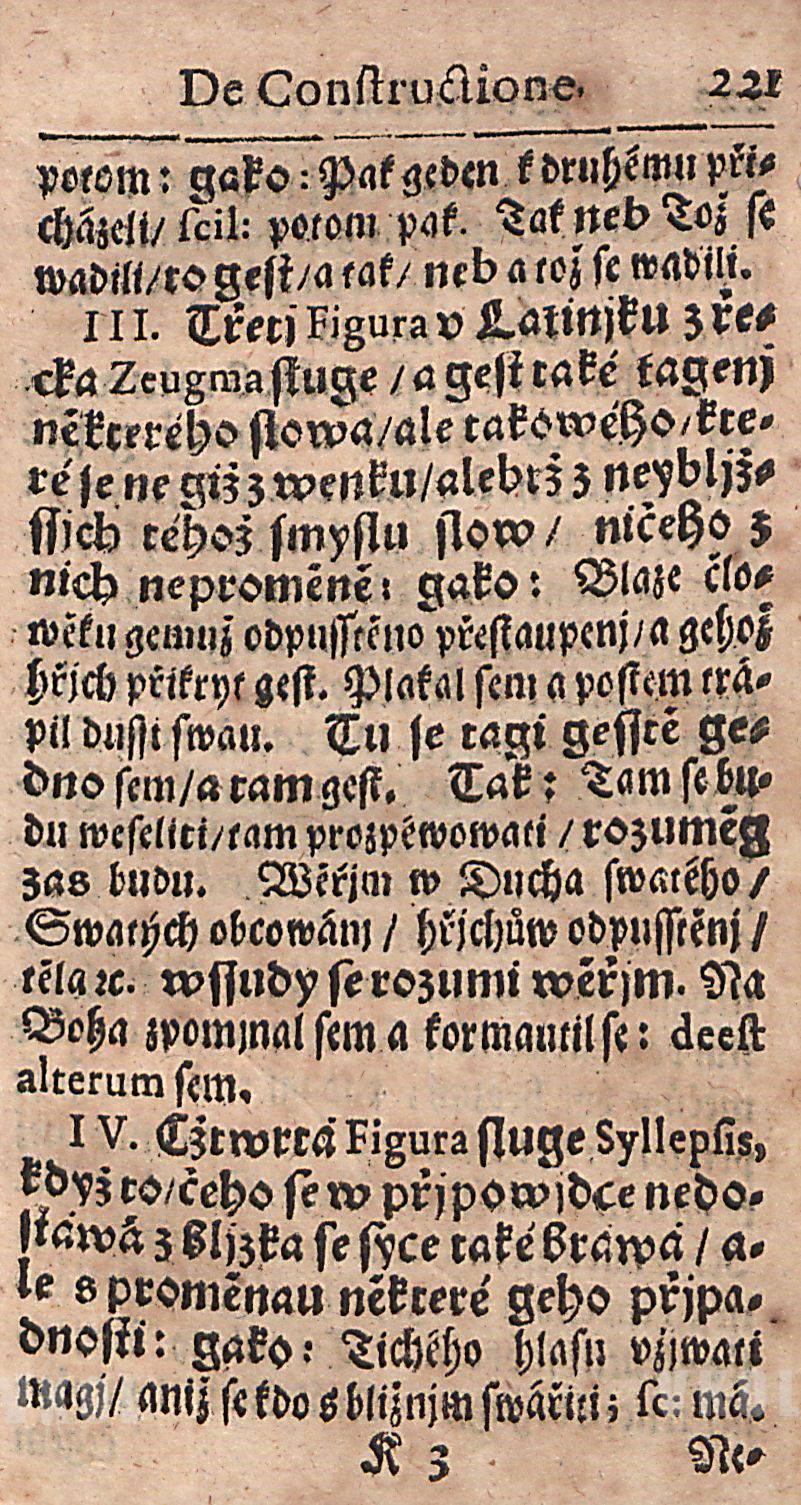 De Constructione. 221
potom: gako: Pak geden k druhému při-
cházeli/ scil: potom pak. Tak neb Tož se
wadili/to gest/a tak/ neb a tož se wadili.
III. Třetj Figura v Latinjku z Ře-
cka Zeugma sluge /a gest také tagenj
některého slowa/ale takowého/kte-
ré se ne giž z wenku/alebrž z neybljž-
ssjch téhož smyslu slow/ ničeho z
nich neproměně: gako: Blaze člo-
wěku gemuž odpusstěno přestaupenj/a gehož
hřjch přikryt gest. Plakal sem a postem trá-
pil dussi swau. Tu se tagi gesstě ge-
dno sem/a tam gest. Tak: Tam se bu-
du weseliti/tam prozpěwowati /rozuměg
zas budu. Wěřjm w Ducha swatého/
Swatých obcowánj/ hřjchůw odpusstěnj/
těla ꝛc. wssudy se rozumi wěřjm. Na
Boha zpomjnal sem a kormautil se: deest
alterum sem.
IV. Cžtwrtá Figura sluge Syllepsis,
když to/čeho se w přjpowjdce nedo-
stáwá z bljzka se syce také bráwá/ a-
le s proměnau některé geho přjpa-
dnosti: gako: Tichého hlasu vžjwati
magj/ aniž se kdo s bližnjm swářiti; sc: má.
K 3 Ne-